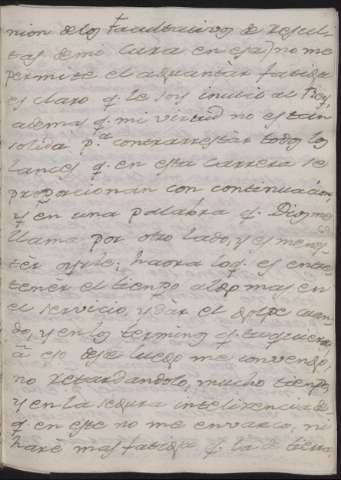 nion de los facultativos de resul
tas de mi cura en esa) no me
permite el aguantar fatiga
es claro q.e le soy inutil al Rey,
ademas q. mi virtud no es tan
solida p.a contrarrestar todos los
lances q. en esta carrera se
proporcionan con continuacion,
y en una palabra q. Dios me
llama por otro lado, y es menes
ter oyrle; haora los q. es entre
tener el tiempo algo mas en
el servicio, y dàr el golpe cuan
do, y en los terminos q.
à eso desde luego me convengo,
no retardandolo, mucho tiempo
y en la segura inteligencia de
q. en ese no me envarco, ni
harè mas fatiga q. la de tierra